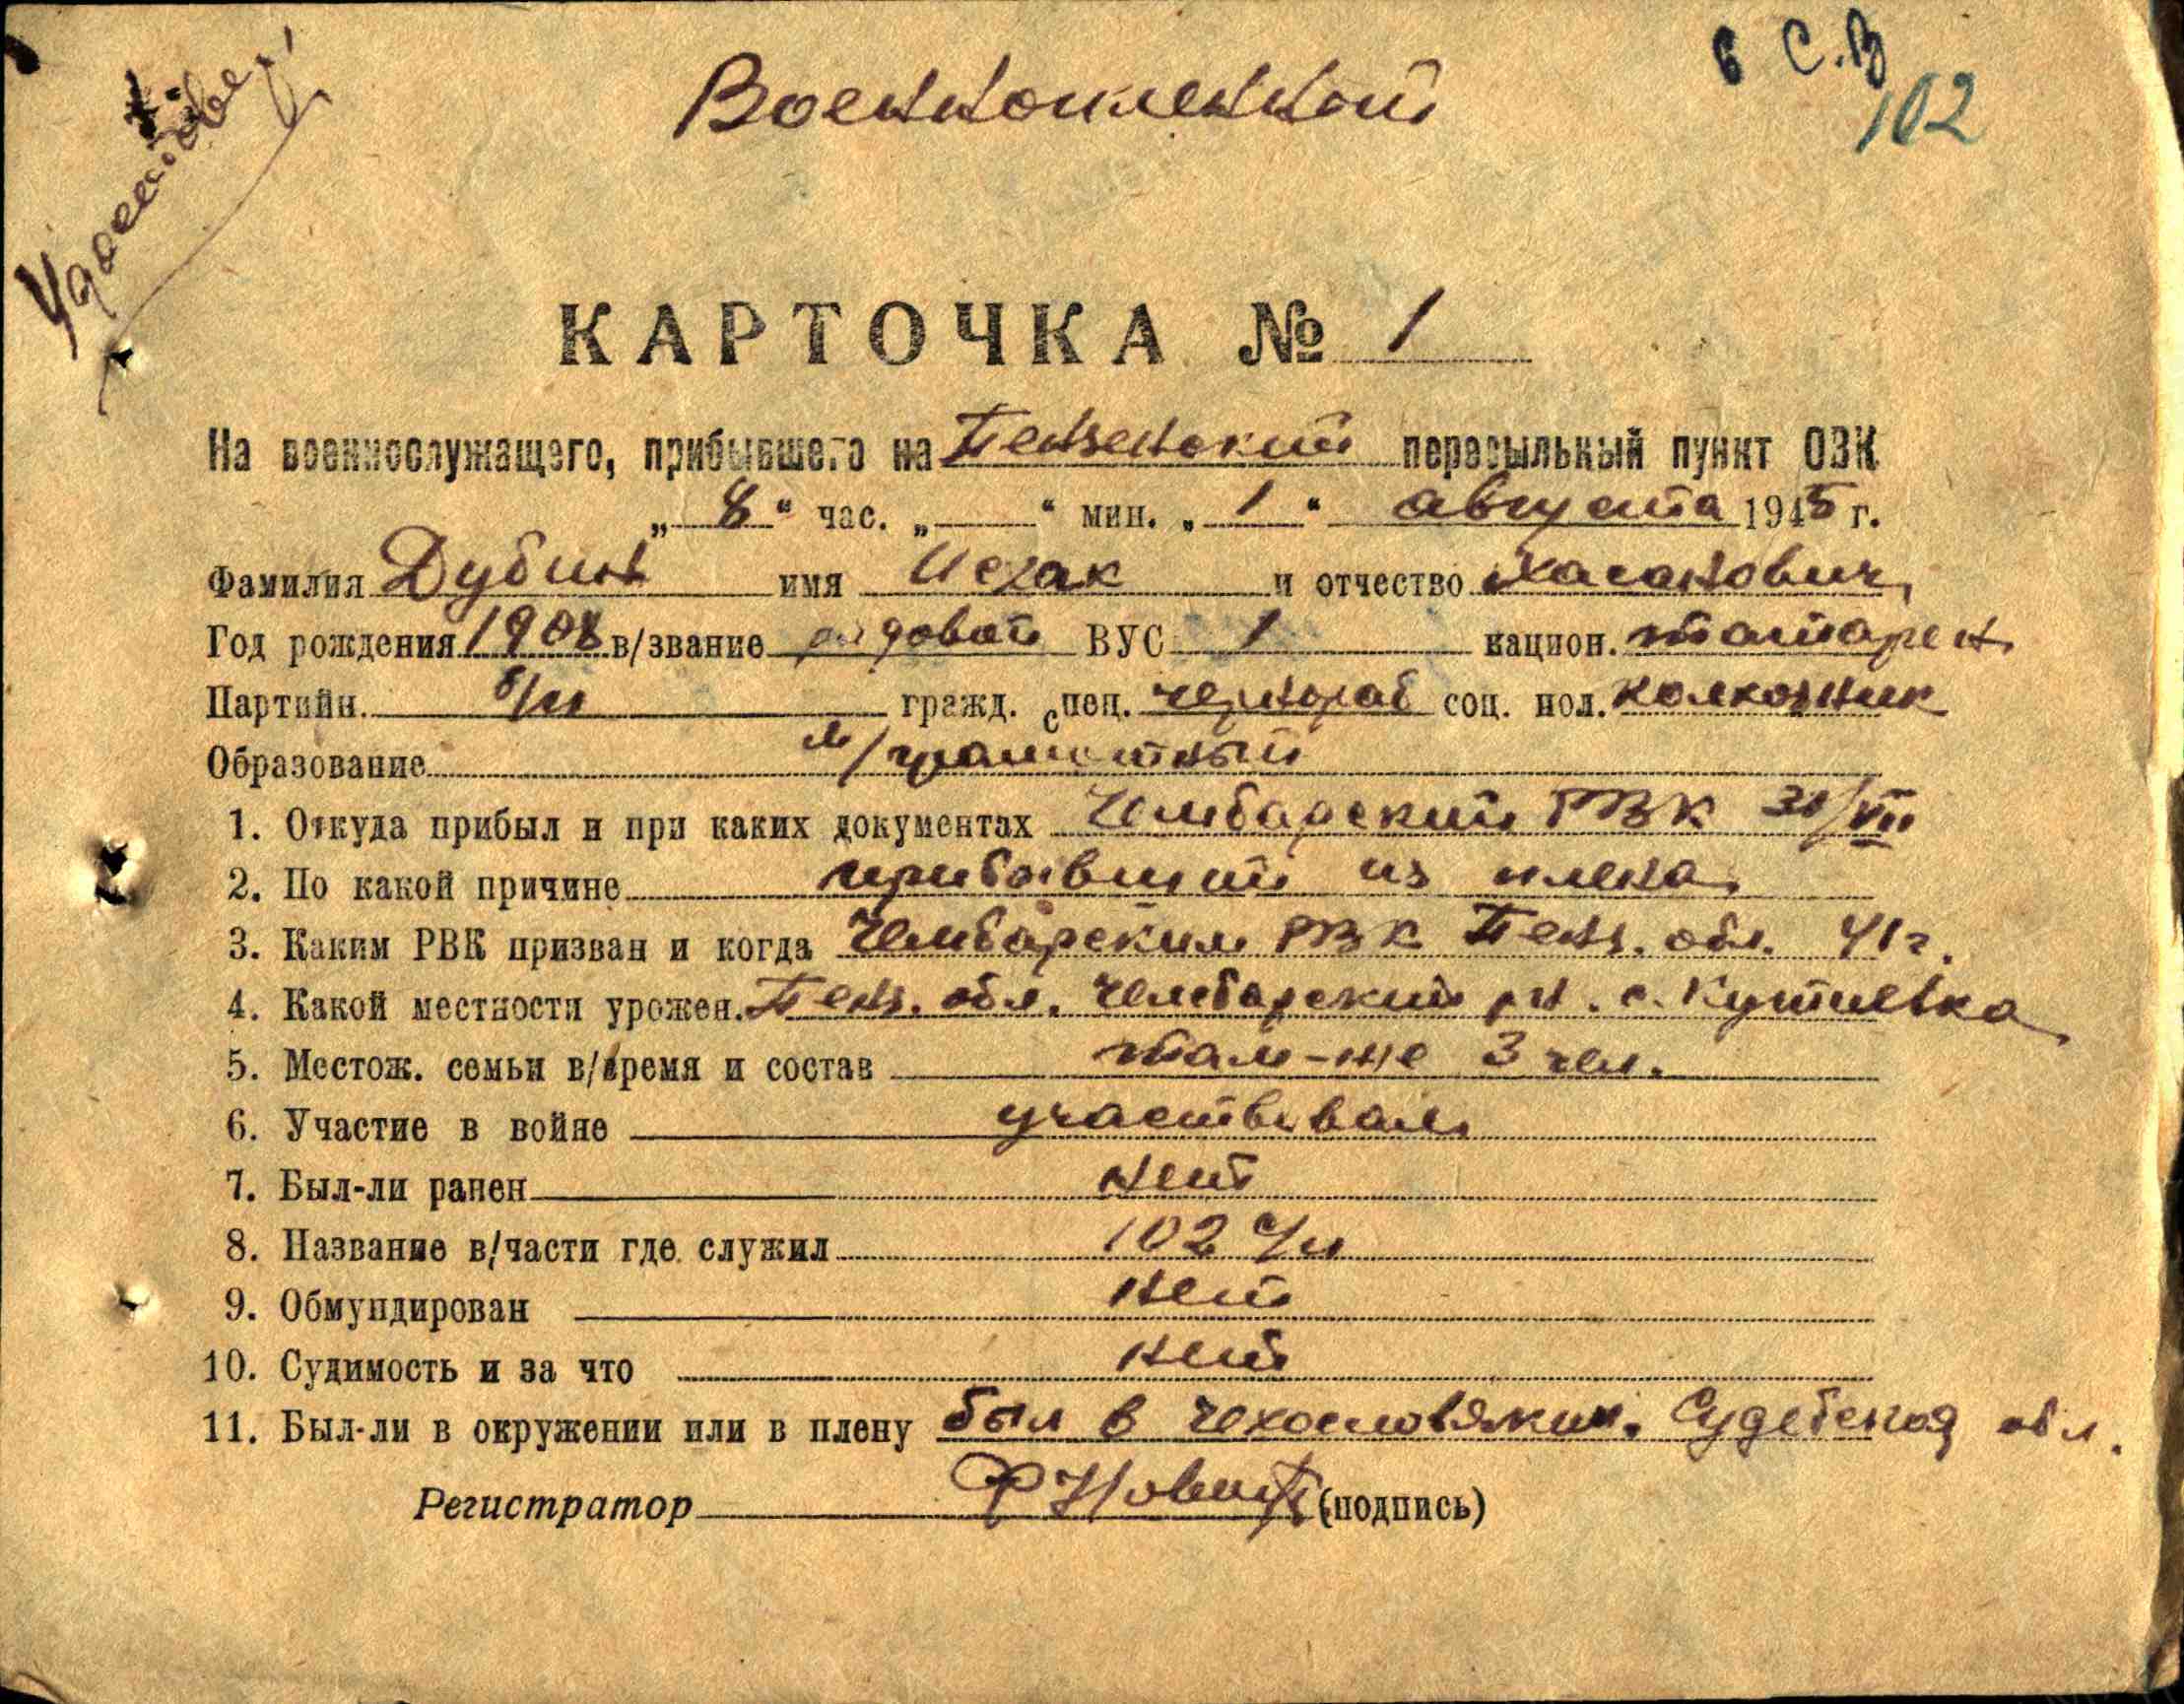 6 С.В
102
Военнопленный
КАРТОЧКА № 1
На военнослужащего, прибывшего на Пензенский пересыльный пункт ОЗК
„ 8 “ час. „ — “ мин. „ 1 “ августа 1945 г.
Фамилия Дубин имя Исхак и отчество Хасанович
Год рождения 1908 в/звание рядовой ВУС 1 национ. татарен
Партийн. б/п гражд. спец. чернораб соц. пол. колхозник
Образование м/грамотный
1. Откуда прибыл и при каких документах Чембарский РВК 31/VII
2. По какой причине прибывший из плена
3. Каким РВК призван и когда Чембарским РВК Пенз. обл. 41 г.
4. Какой местности урожен. Пенз. обл. Чембарский рн. с. Кутеевка
5. Местож. семьи в/время и состав там-же 3 чел.
6. Участие в войне участвовал
7. Был-ли ранен нет
8. Название в/части где служил 102 с/п
9. Обмундирован нет
10. Судимость и за что нет
11. Был-ли в окружении или в плену был в Чехословакии. Судебская обл.
Регистратор (подпись)